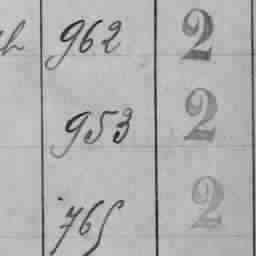 962 2
953 2
765 2